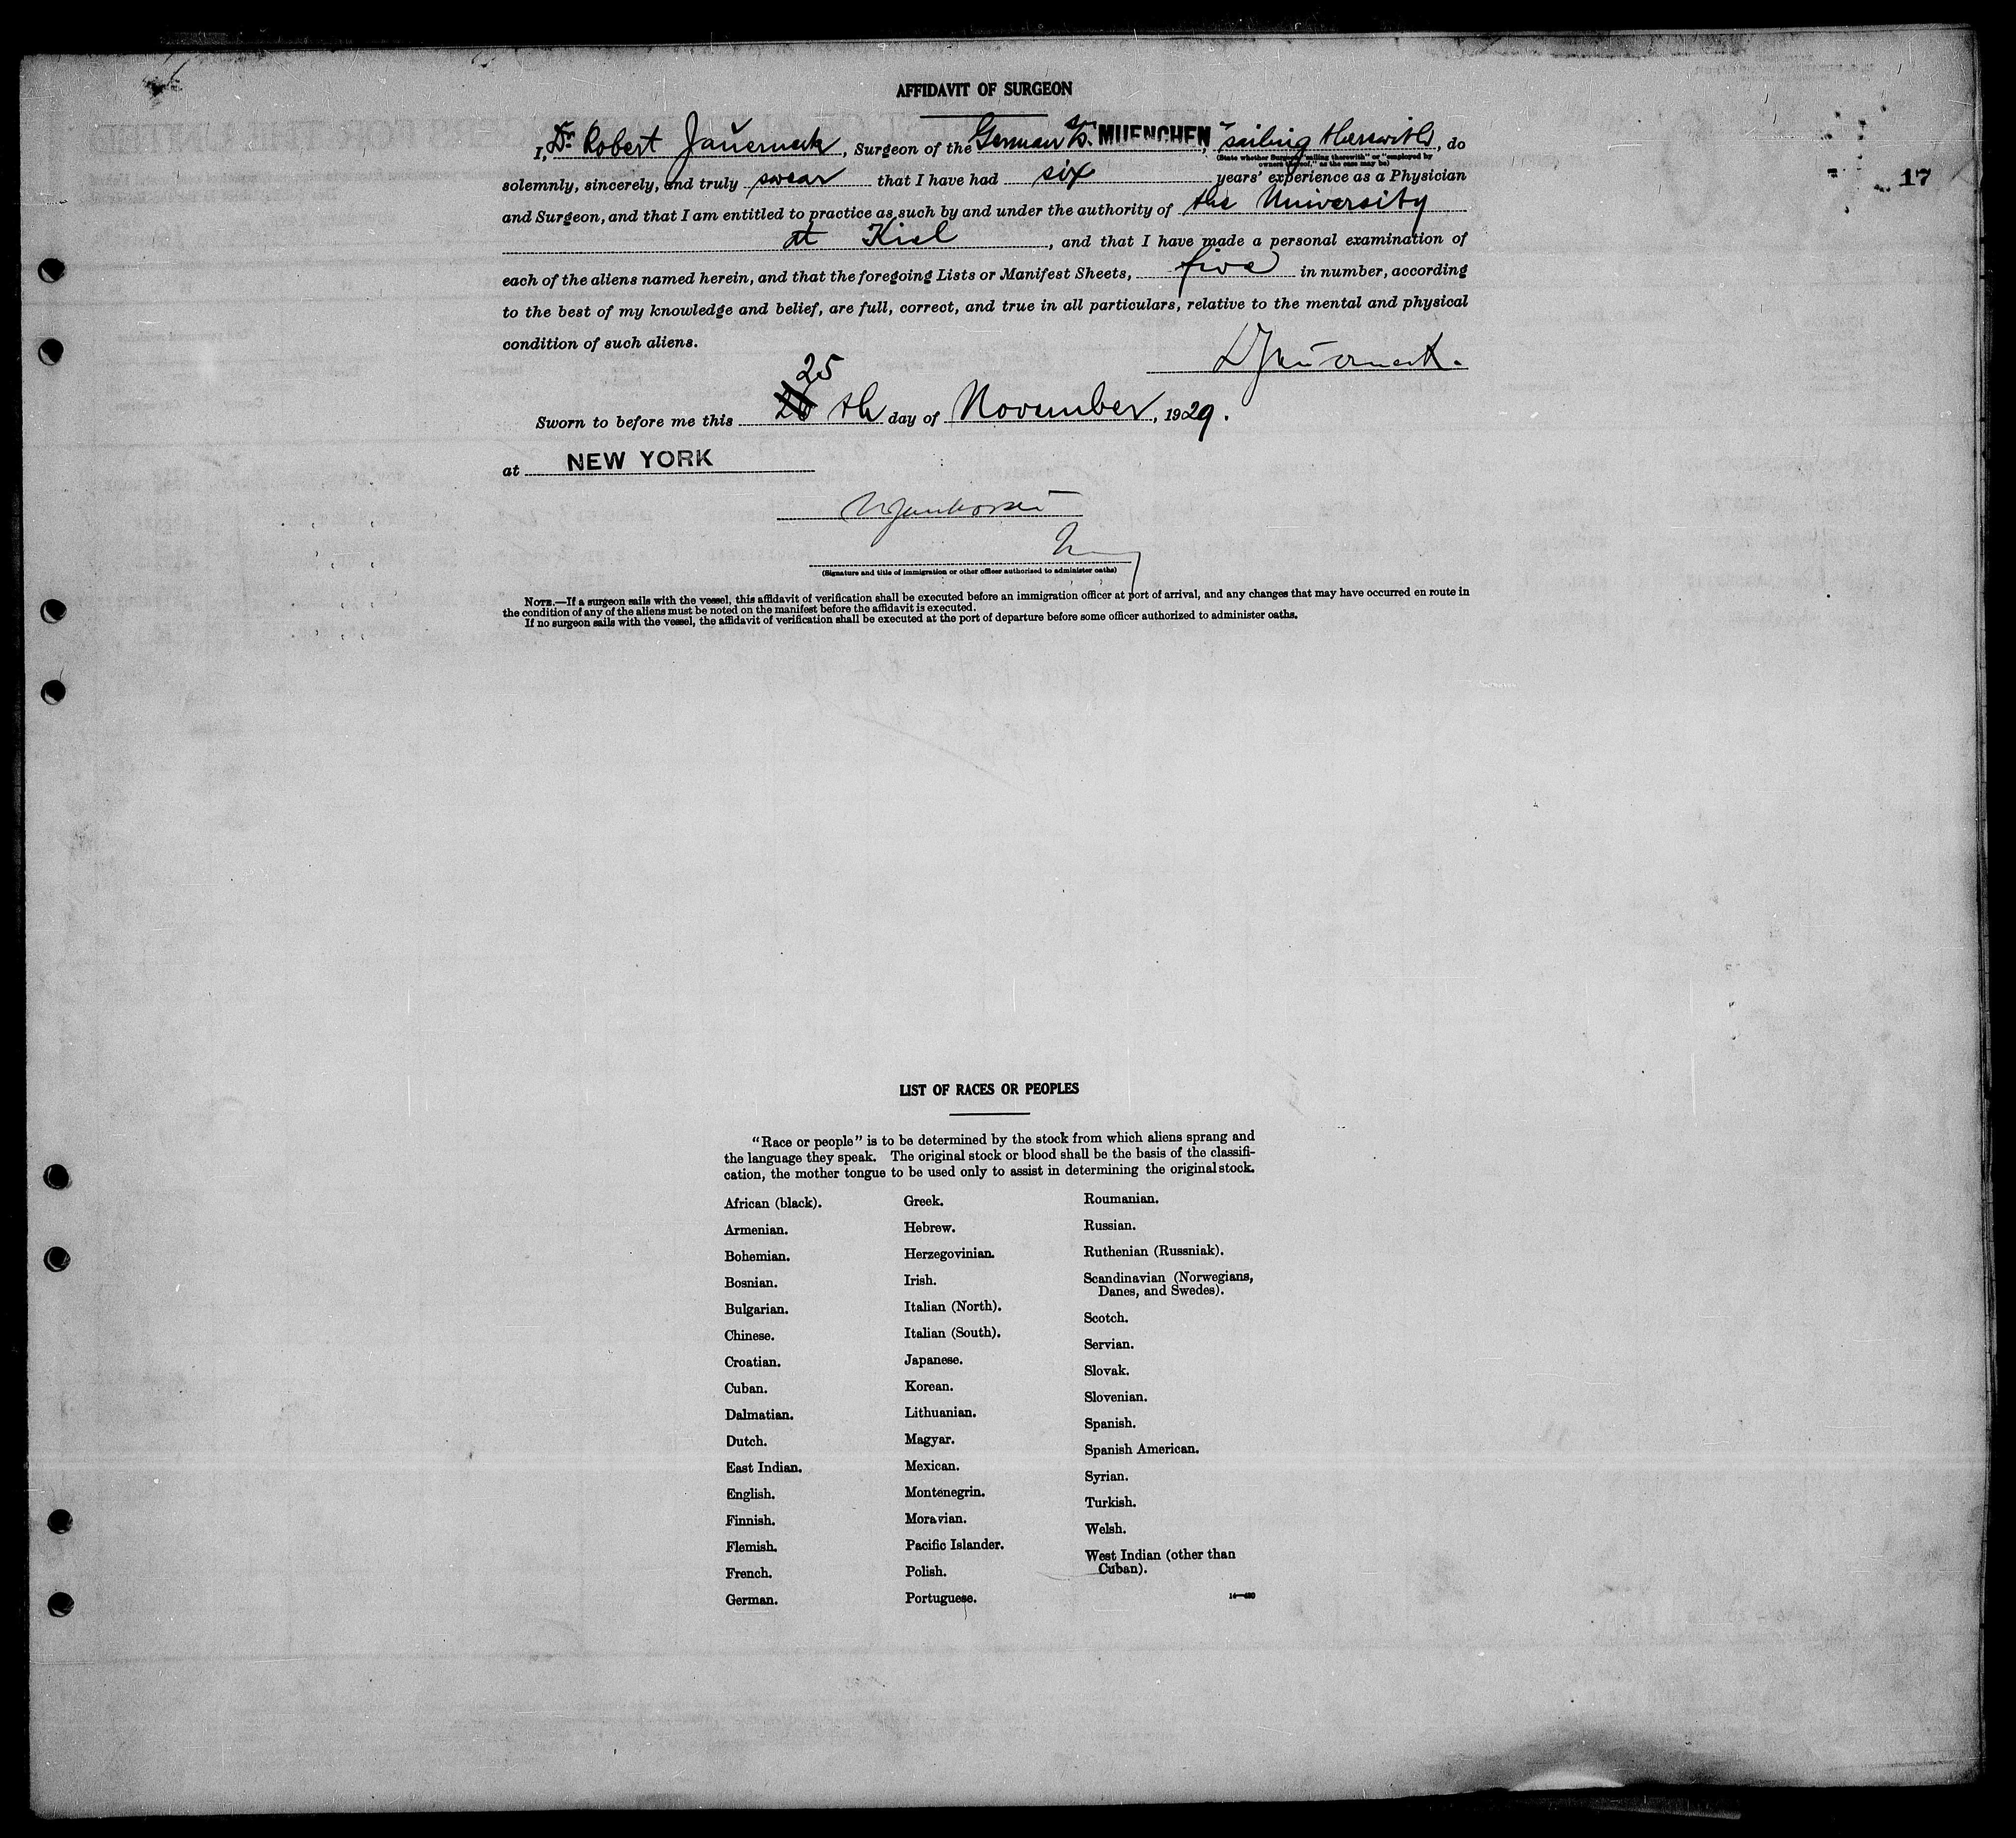 AFFIDAVIT OF SURGEON
17
I, Dr. Robert Jauernick, Surgeon of the German S/S. MUENCHEN, "sailing therewith", do
(State whether Surgeon "sailing therewith" or "employed by
owners thereof," as the case may be)
solemnly, sincerely, and truly swear that I have had six years' experience as a Physician
and Surgeon, and that I am entitled to practice as such by and under the authority of the University
at Kiel, and that I have made a personal examination of
each of the aliens named herein, and that the foregoing Lists or Manifest Sheets, five in number, according
to the best of my knowledge and belief, are full, correct, and true in all particulars, relative to the mental and physical
condition of such aliens.
25
Sworn to before me this th day of November, 1929.
at NEW YORK
(Signature and title of immigration or other officer authorized to administer oaths)
NOTE.—If a surgeon sails with the vessel, this affidavit of verification shall be executed before an immigration officer at port of arrival, and any changes that may have occurred en route in
the condition of any of the aliens must be noted on the manifest before the affidavit is executed.
If no surgeon sails with the vessel, the affidavit of verification shall be executed at the port of departure before some officer authorized to administer oaths.
LIST OF RACES OR PEOPLES
"Race or people" is to be determined by the stock from which aliens sprang and
the language they speak. The original stock or blood shall be the basis of the classifi-
cation, the mother tongue to be used only to assist in determining the original stock.
African (black).
Armenian.
Bohemian.
Bosnian.
Bulgarian.
Chinese.
Croatian.
Cuban.
Dalmatian.
Dutch.
East Indian.
English.
Finnish.
Flemish.
French.
German.
Greek.
Hebrew.
Herzegovinian.
Irish.
Italian (North).
Italian (South).
Japanese.
Korean.
Lithuanian.
Magyar.
Mexican.
Montenegrin.
Moravian.
Pacific Islander.
Polish.
Portuguese.
Roumanian.
Russian.
Ruthenian (Russniak).
Scandinavian (Norwegians,
Danes, and Swedes).
Scotch.
Servian.
Slovak.
Slovenian.
Spanish.
Spanish American.
Syrian.
Turkish.
Welsh.
West Indian (other than
Cuban).